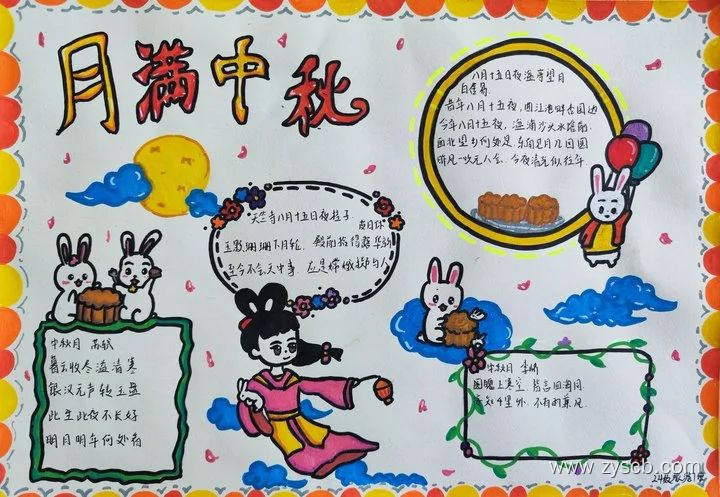 月满中秋
八月十五日夜湓亭望月
白居易
昔年八月十五夜,曲江池畔杏园边
今年八月十五夜,湓浦沙头水馆前.
西北望乡何处是,东南见月几回圆
昨风一吹无人会,今夜清光似往年
天竺寺八月十五日夜桂子
皮日休
玉颗珊珊下月轮,殿前拾得露华新
至今不会天中事,应是嫦娥掷与人
中秋月 苏轼
暮云收尽溢清寒
银汉无声转玉盘
此生此夜不长好
明月明年何处看
中秋月 李峤
圆魄上寒空 皆言四海同
安知千里外,不有雨兼风.
www.zyscb.com